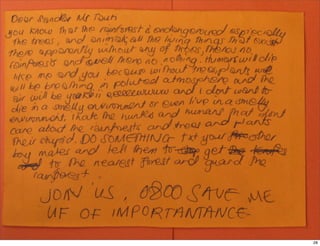 Dear Sunder Mr Tauti
you know that the rainforest is endangered especially
the trees, and animals all the living things that exist
there apparently without any of trees, theres no
rainforests and theres no, nothing. Humans will die
like me and you because without trees, plants we
will be breathing in polluted atmosphere and the
air will be and i dont want to
die in a smelly environment or even live in a smelly
environment. I hate the hunters and humans that dont
care about the rainforests and trees and plants
Their stupid. DO SOMETHING txt your other
boy mates and tell them to get
to the nearest forest and guard the
rainforest.
JOIN US, 0800 SAVE ME
UF OF IMPORTANTANCE
28